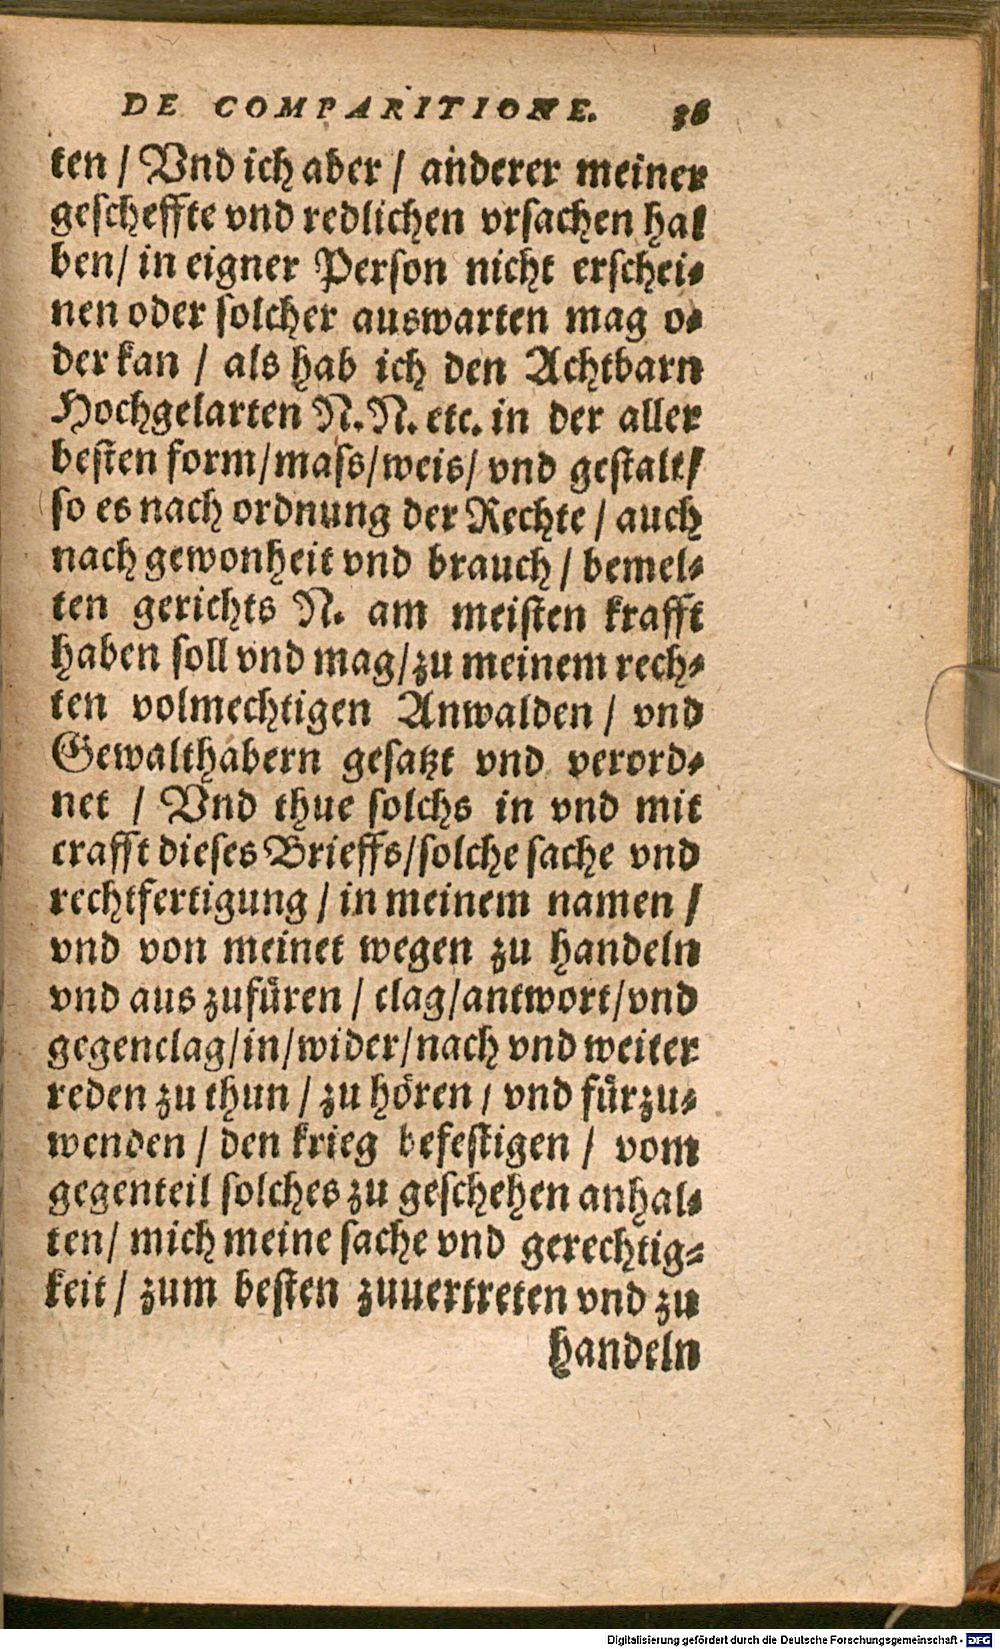 DE COMPARITIONE. 36
ten / Vnd ich aber / anderer meiner
gescheffte vnd redlichen vrsachen hal
ben / in eigner Person nicht erschei⸗
nen oder solcher auswarten mag o⸗
der kan / als hab ich den Achtbarn
Hochgelarten N. N. etc. in der aller
besten form / mass / weis / vnd gestalt /
so es nach ordnung der Rechte / auch
nach gewonheit vnd brauch / bemel⸗
ten gerichts N. am meisten krafft
haben soll vnd mag / zu meinem rech⸗
ten volmechtigen Anwalden / vnd
Gewalthabern gesatzt vnd verord⸗
net / Vnd thue solchs in vnd mit
crafft dieses Brieffs / solche sache vnd
rechtfertigung / in meinem namen /
vnd von meinet wegen zu handeln
vnd aus zufüren / clag / antwort / vnd
gegenclag / in / wider / nach vnd weiter
reden zu thun / zu hören / vnd fürzu⸗
wenden / den krieg befestigen / vom
gegenteil solches zu geschehen anhal⸗
ten / mich meine sache vnd gerechtig⸗
keit / zum besten zuuertreten vnd zu
handeln
Digitalisierung gefördert durch die Deutsche Forschungsgemeinschaft - DFG